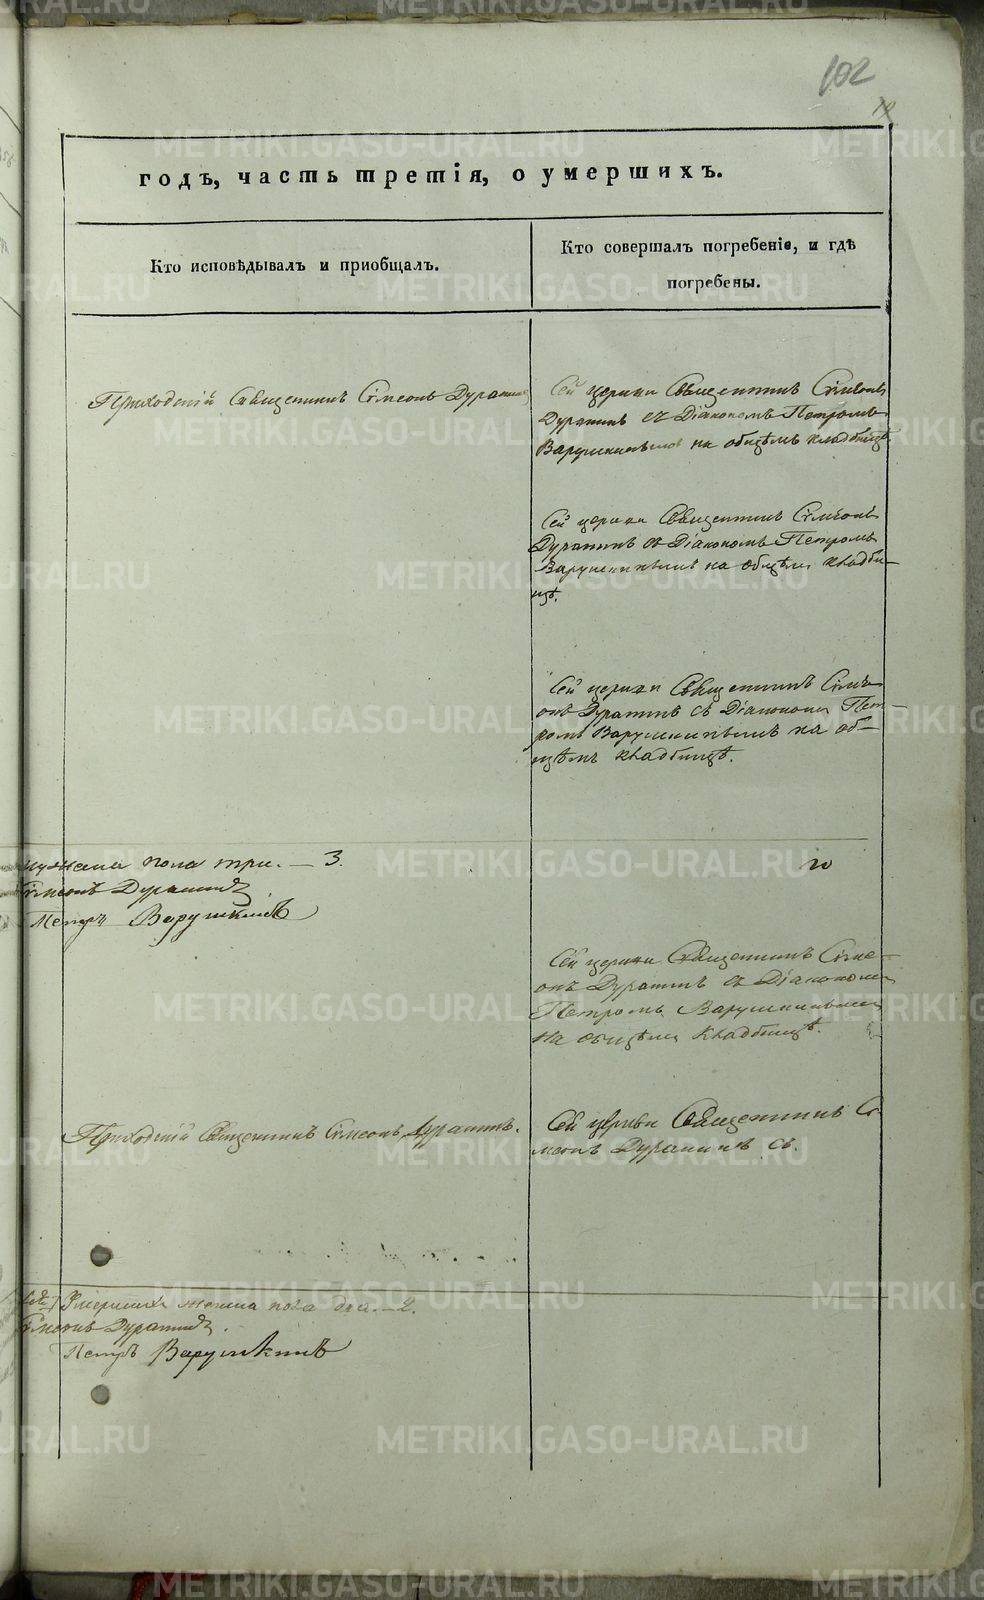 102
годъ, часть третія, о умершихъ.
Кто исповѣдывалъ и приобщалъ.
Кто совершалъ погребеніе, и гдѣ
погребены.
Приходскій Священникъ Сімеонъ Дурагинъ
Сей церкви Священникъ Сімеонъ
Дурагинъ съ Діакономъ Петромъ
Варушкинымъ на общемъ кладбищѣ.
Сей церкви Священникъ Сімеонъ
Дурагинъ съ Діакономъ Петромъ
Варушкинымъ на общемъ кладби-
щѣ.
Сей церкви Священникъ Сімѣ-
онъ Дурагинъ съ Діакономъ Пет-
ромъ Варушкинымъ на об-
щемъ кладбищѣ.
мужеска пола три. — 3.
Сімеонъ Дурагинъ.
Петръ Варушкинъ
Сей церкви Священникъ Сіме-
онъ Дурагинъ съ Діакономъ
Петромъ Варушкинымъ
на общемъ кладбищѣ.
Приходскій Священникъ Сімеонъ Дурагинъ.
Сей церкви Священникъ Сі-
меонъ Дурагинъ съ.
Умершихъ женска пола два. — 2.
Сімеонъ Дурагинъ.
Петръ Варушкинъ
METRIKI.GASO-URAL.RU